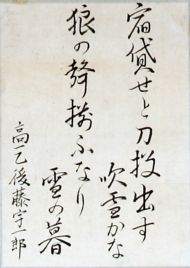 宿貸せと刀投出す
吹雪かな
狼の聲揃ふなり
雪の暮
高一乙後藤宇一郎